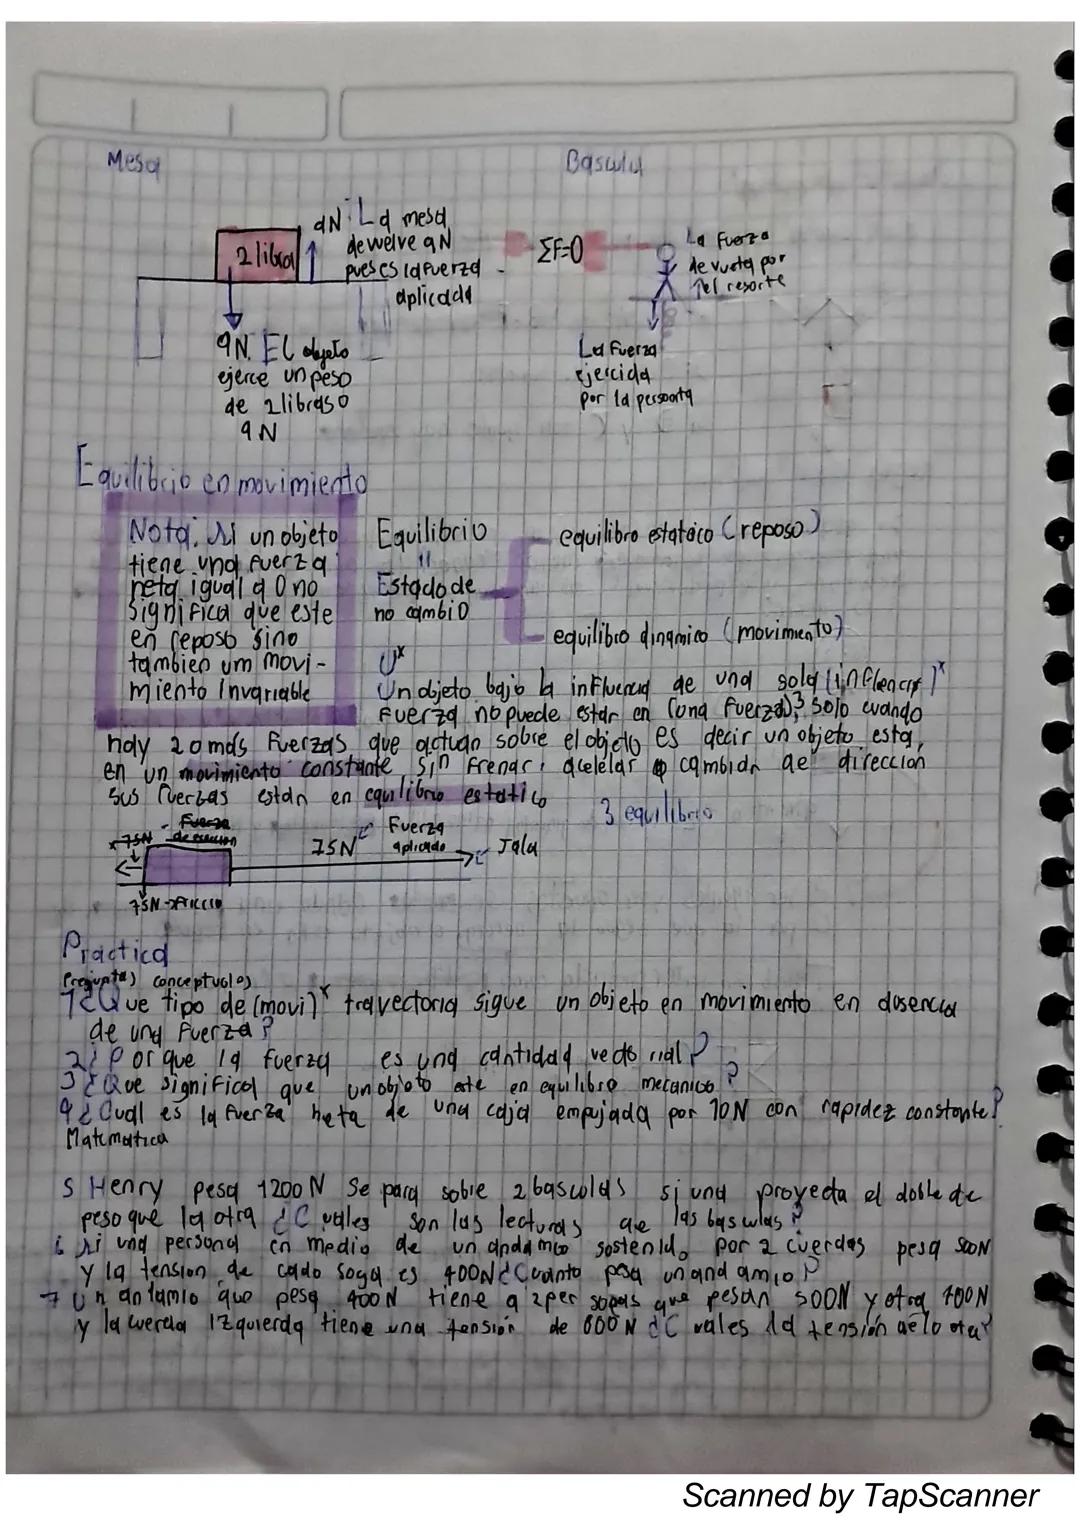 Mesa
Bascula
2 libras
9N: La mesa
devuelve 9N
pues es la fuerza
aplicada
ΣF=0
La fuerza
de vuelta por
el resorte
9N. El objeto
ejerce un peso
de 2libras o
9N
La fuerza
ejercida
por la persona
Equilibrio en movimiento
Nota: Si un objeto
tiene una fuerza
neta igual a 0 no
significa que este
en reposo sino
tambien um movi-
miento invariable
Equilibrio
"
Estado de
no cambio
equilibro estatico (reposo)
equilibro dinamico (movimiento)
Un objeto bajo la influencia de una sola (inflencia)x
fuerza no puede estar en (una fuerza)3 solo cuando
hay 2 o más fuerzas que actuan sobre el objeto es decir un objeto esta
en un movimiento constante sin frenar, acelelar o cambiar de direccion
sus fuerzas están en equilibrio estatico
3 equilibrio
75N
Fuerza
75N
Fuerza
aplicada
Jala
75N → Friccio
Practica
Preguntas conceptuales
1 ¿Que tipo de (movi)x trayectoria sigue un objeto en movimiento en ausencia
de una fuerza?
2 ¿Por que la fuerza es una cantidad vectorial?
3 ¿Que significa que un objeto este en equilibro mecanico?
4 ¿Cual es la fuerza neta de una caja empujada por 10N con rapidez constante?
Matematica
5 Henry pesa 1200 N Se para sobre 2 basculas si una proyecta el doble de
peso que la otra ¿Cuales son las lecturas de las basculas?
6 Si una persona en medio de un andamio sostenido por 2 cuerdas pesa 500N
y la tension de cada soga es 400N ¿Cuanto pesa un andamio?
7 Un andamio que pesa 400N tiene a 2 per que pesan 500N y otra 400N
y la cuerda izquierda tiene una tensión de 800N ¿Cuales la tensión de